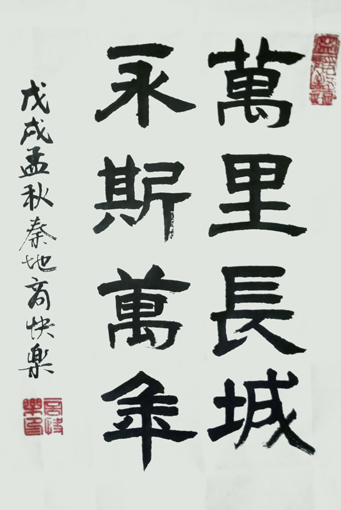 萬里長城
永斯萬年
戊戌孟秋秦地商快樂